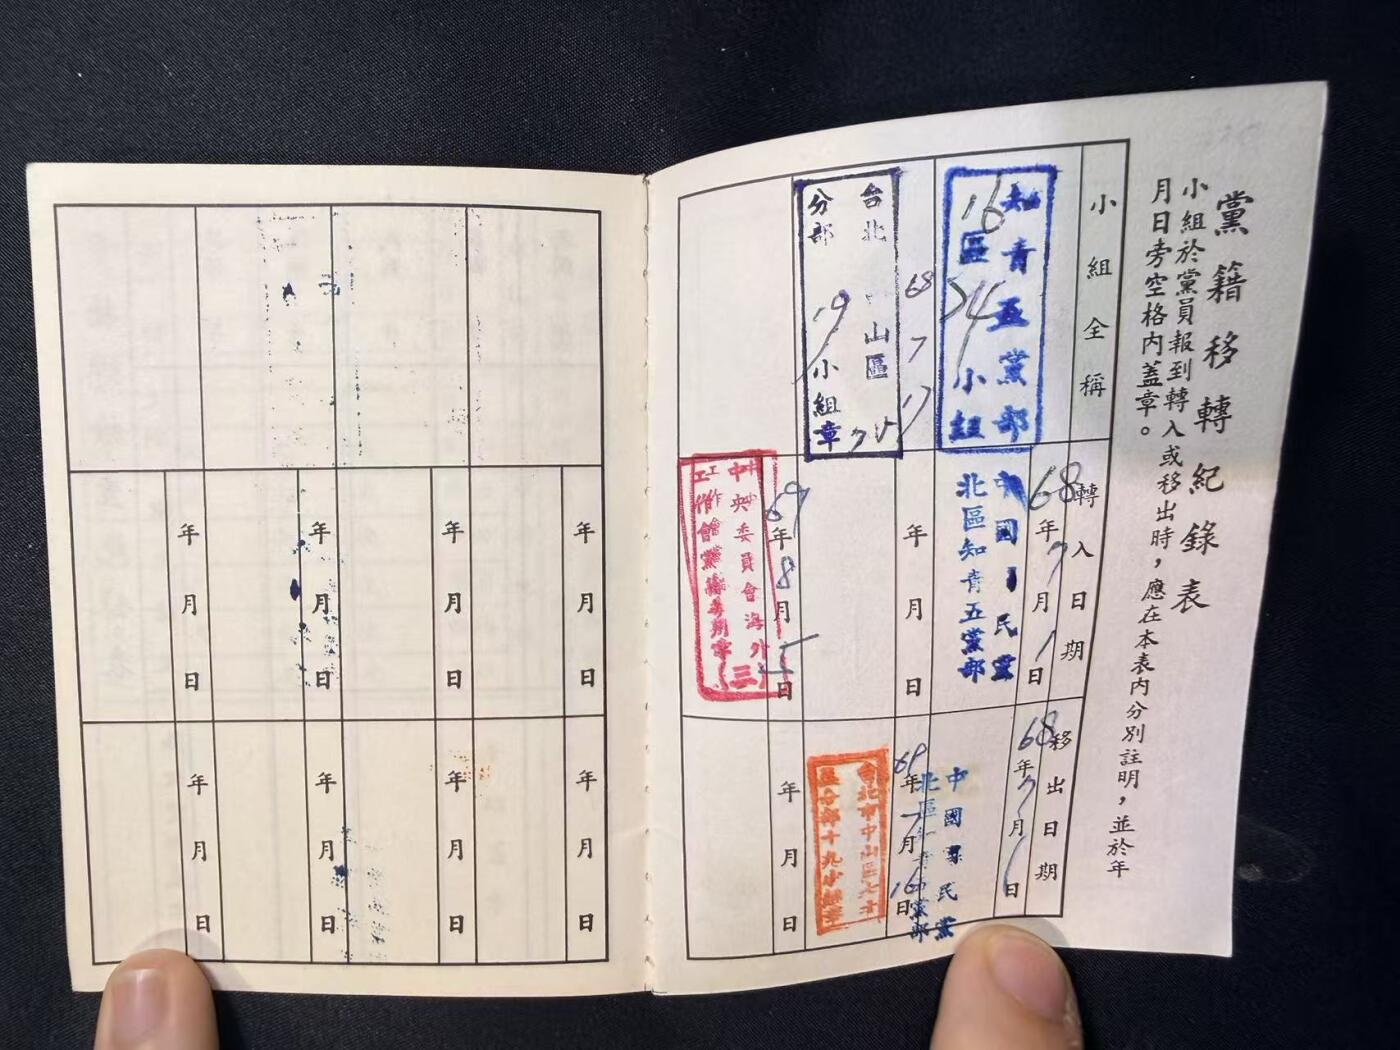 黨籍移轉紀錄表
小組於黨員報到轉入或移出時，應在本表內分別註明，並於年
月日旁空格內蓋章。
小組全稱
轉入日期
移出日期
知青五黨部
16區54小組
68年7月1日
中國國民黨
北區知青五黨部
68年7月1日
中國國民黨
北區知青五黨部
68 7 17
台北 中山區
分部 19小組章
年月日
69年7月16日
台北市中山區七十
區分部十九小組章
69年8月5日
中央委員會海外
工作會黨籍專用章
(三)
年月日
年月日
年月日
年月日
年月日
年月日
年月日
年月日
年月日